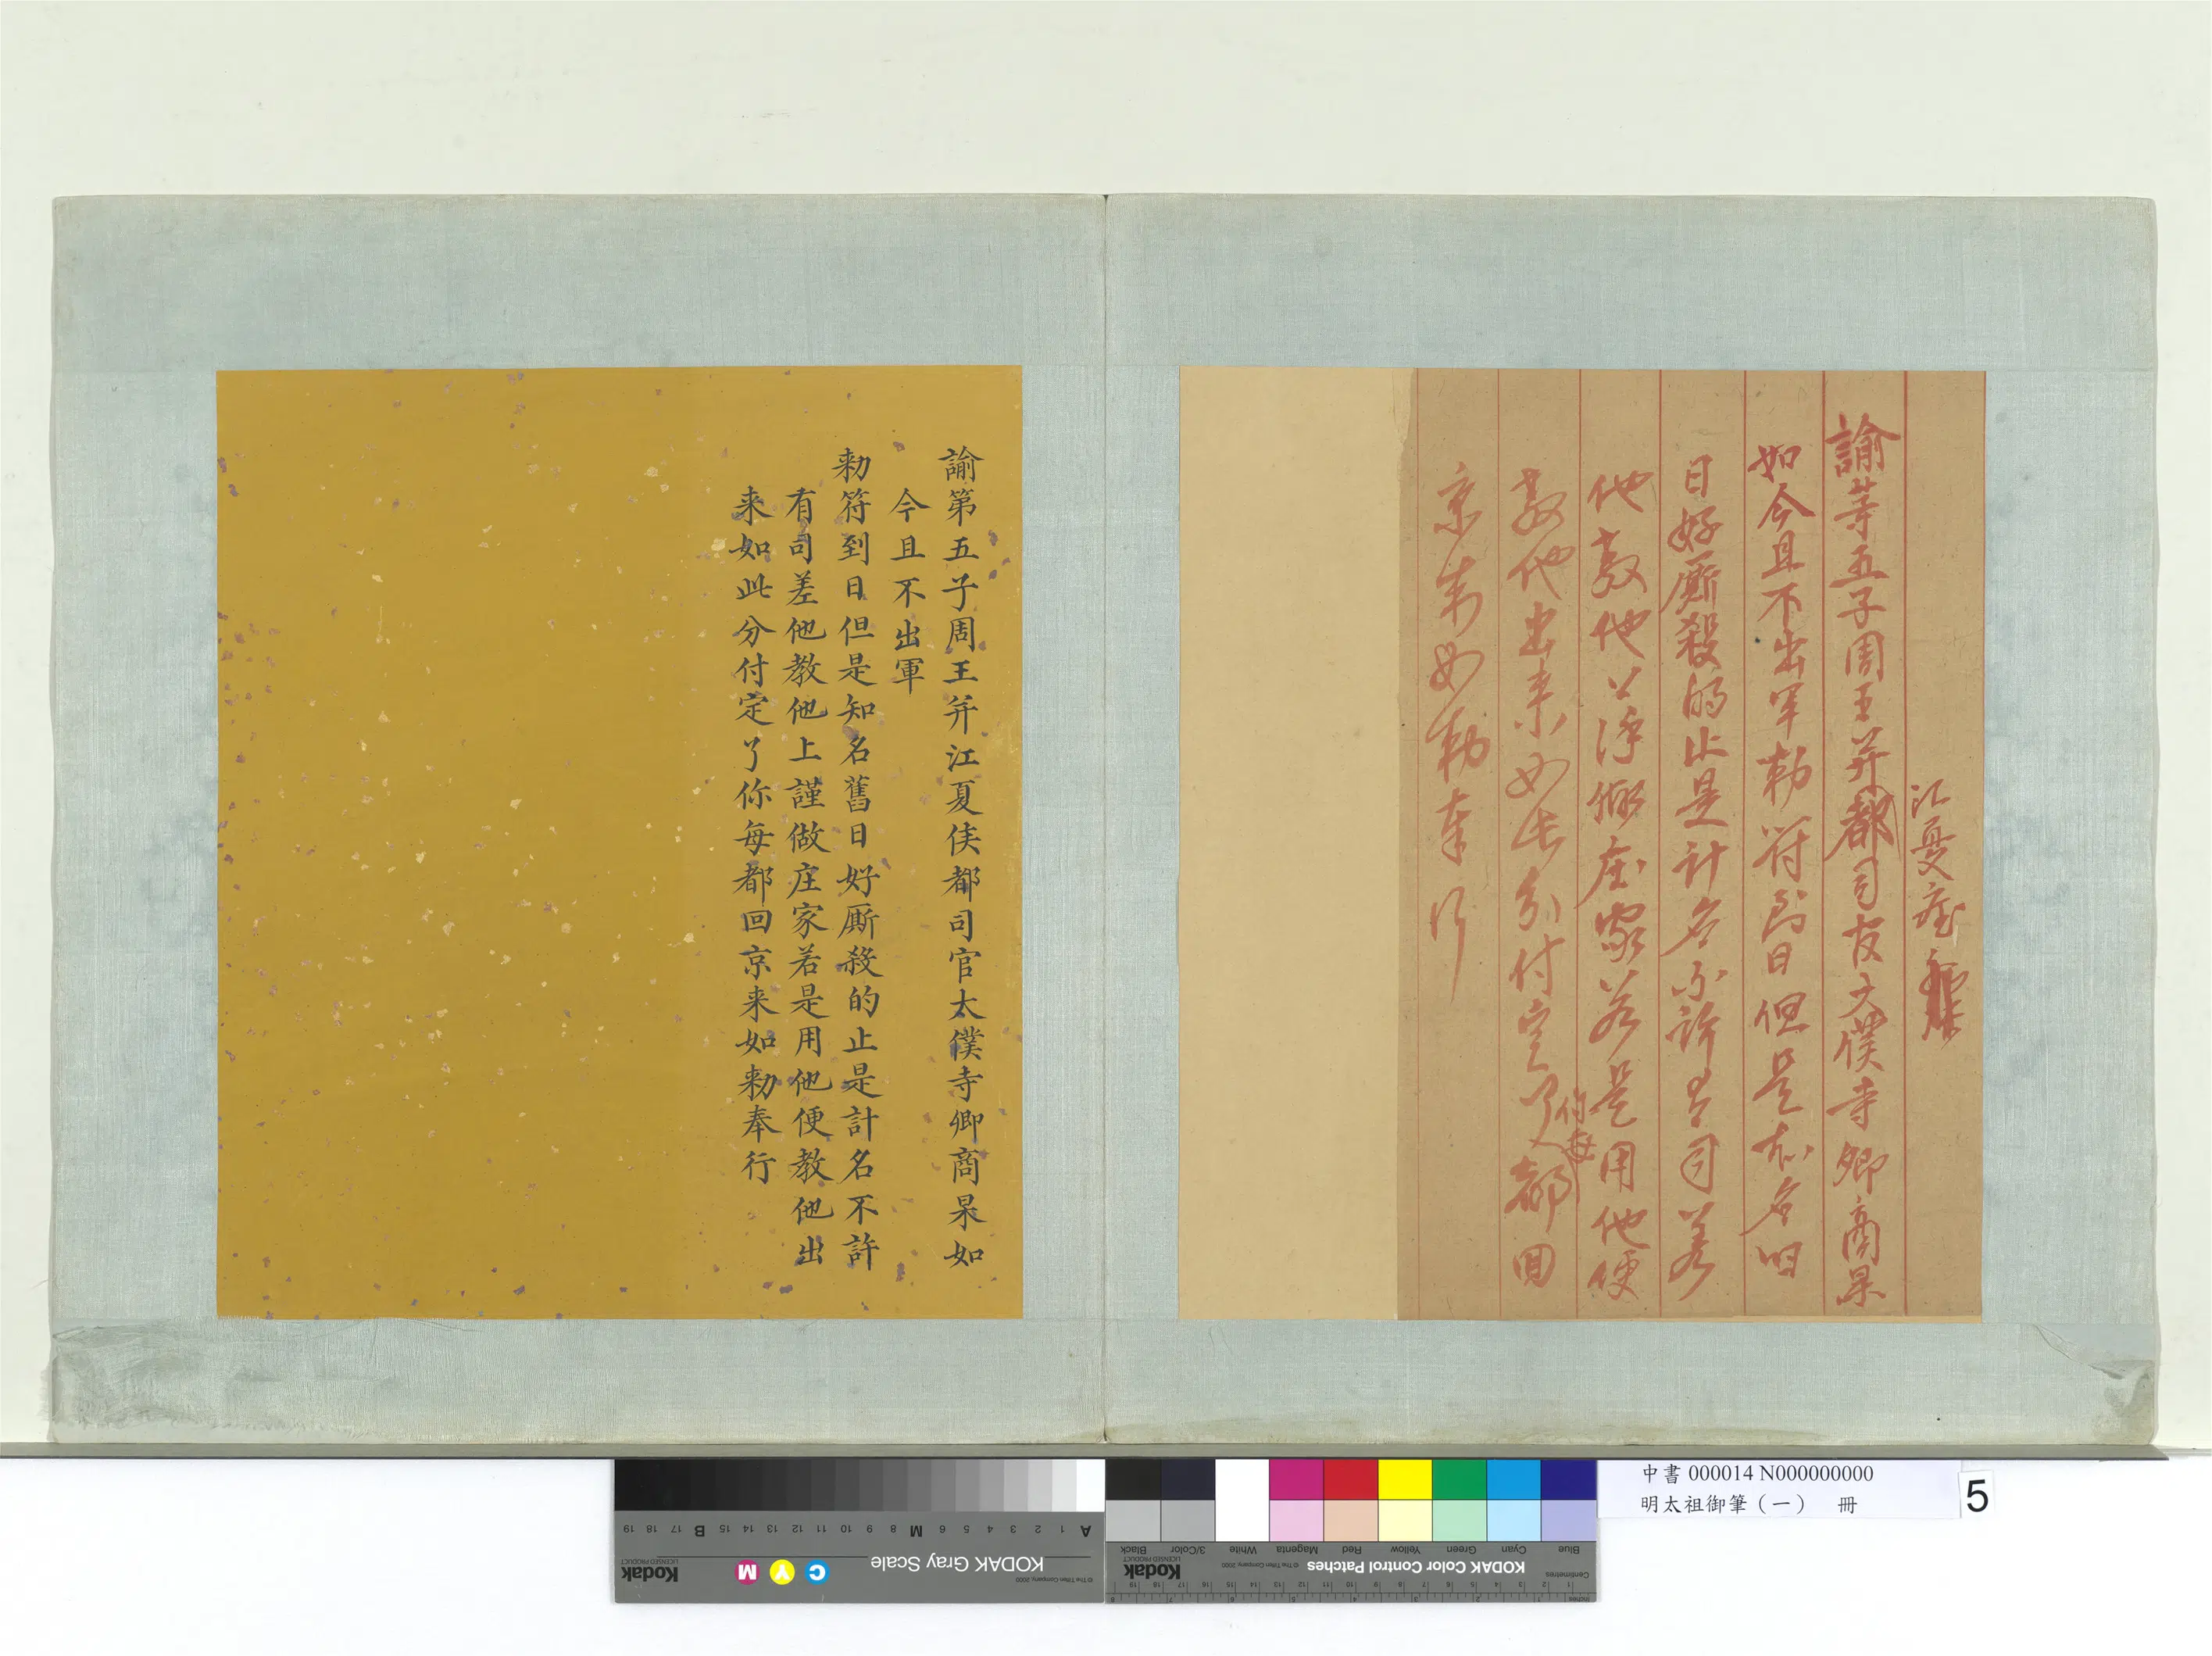 江夏侯
諭苐五子周王并都司官太僕寺卿商杲
如今且不出軍勅符到日但是知名旧
日好厮殺的止是計名不許有司差
他教他上謹做庄家若是用他便
教他出来如此分付定了你每都回
京来如勅奉行
諭第五子周王并江夏侯都司官太僕寺卿商杲如
今且不出軍
勅符到日但是知名舊日好厮殺的止是計名不許
有司差他教他上謹做庄家若是用他便教他出
来如此分付定了你每都回京来如勅奉行
KODAK Gray Scale
C Y M
Kodak
LICENSED PRODUCT
A 1 2 3 4 5 6 M 8 9 10 11 12 13 14 15 B 17 18 19
© The Tiffen Company, 2000
KODAK Color Control Patches
Kodak
LICENSED PRODUCT
© The Tiffen Company, 2000
Blue Cyan Green Yellow Red Magenta White 3/Color Black
Centimetres
Inches
中書000014 N000000000
明太祖御筆（一） 冊
5